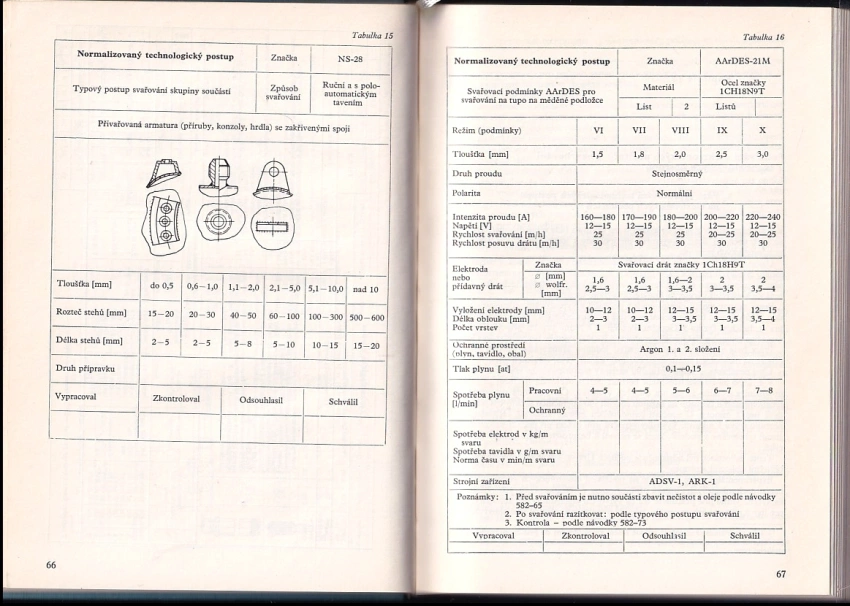 Tabulka 15
Normalizovaný technologický postup Značka NS-28
Typový postup svařování skupiny součástí Způsob svařování Ruční a s polo-automatickým tavením
Přivařovaná armatura (příruby, konzoly, hrdla) se zakřivenými spoji
Tloušťka [mm] do 0,5 0,6—1,0 1,1—2,0 2,1—5,0 5,1—10,0 nad 10
Rozteč stehů [mm] 15—20 20—30 40—50 60—100 100—300 500—600
Délka stehů [mm] 2—5 2—5 5—8 5—10 10—15 15—20
Druh přípravku
Vypracoval Zkontroloval Odsouhlasil Schválil
66
Tabulka 16
Normalizovaný technologický postup Značka AArDES-21M
Svařovací podmínky AArDES pro svařování na tupo na měděné podložce Materiál Ocel značky 1CH18N9T
List 2 Listů
Režim (podmínky) VI VII VIII IX X
Tloušťka [mm] 1,5 1,8 2,0 2,5 3,0
Druh proudu Stejnosměrný
Polarita Normální
Intenzita proudu [A] 160—180 170—190 180—200 200—220 220—240
Napětí [V] 12—15 12—15 12—15 12—15 12—15
Rychlost svařování [m/h] 25 25 25 20—25 20—25
Rychlost posuvu drátu [m/h] 30 30 30 30 30
Elektroda nebo přídavný drát Značka Svařovací drát značky 1Ch18H9T
⌀ [mm] 1,6 1,6 1,6—2 2 2
⌀ wolfr. [mm] 2,5—3 2,5—3 3—3,5 3—3,5 3,5—4
Vyložení elektrody [mm] 10—12 10—12 12—15 12—15 12—15
Délka oblouku [mm] 2—3 2—3 3—3,5 3—3,5 3,5—4
Počet vrstev 1 1 1 1 1
Ochranné prostředí (plyn, tavidlo, obal) Argon 1. a 2. složení
Tlak plynu [at] 0,1—0,15
Spotřeba plynu [l/min] Pracovní 4—5 4—5 5—6 6—7 7—8
Ochranný
Spotřeba elektrod v kg/m svaru
Spotřeba tavidla v g/m svaru
Norma času v min/m svaru
Strojní zařízení ADSV-1, ARK-1
Poznámky: 1. Před svařováním je nutno součásti zbavit nečistot a oleje podle návodky
582—65
2. Po svařování razítkovat: podle typového postupu svařování
3. Kontrola — podle návodky 582—73
Vypracoval Zkontroloval Odsouhlasil Schválil
67